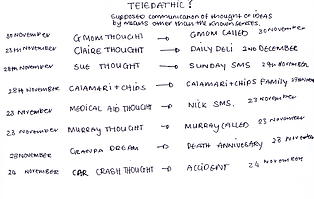 TELEPATHIC?
Supposed communication of thought or ideas
by means other than the known senses.
30 NOVEMBER GMOM THOUGHT → GMOM CALLED 30 NOVEMBER
CLAIRE THOUGHT → DAILY DELI 2ND DECEMBER
SUE THOUGHT → SUNDAY SMS 29TH NOVEMBER
28TH NOVEMBER CALAMARI + CHIPS → CALAMARI + CHIPS FAMILY
23 NOVEMBER MEDICAL AID THOUGHT → NICK SMS. 23 NOVEMBER
23 NOVEMBER MURRAY THOUGHT → MURRAY CALLED 23 NOVEMBER
NOVEMBER GRANPA DREAM → DEATH ANNIVERSARY 28 NOVEMBER
24 NOVEMBER CAR CRASH THOUGHT → ACCIDENT 24 NOVEMBER